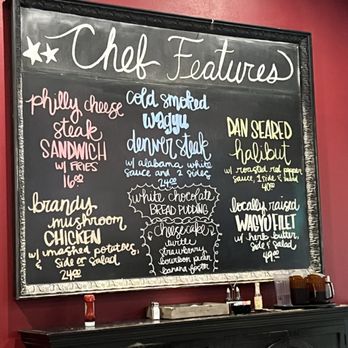 Chef Features
philly cheese
steak
SANDWICH
w/ FRIES
16.00
brandy
mushroom
CHICKEN
w/ mashed potatoes,
side or salad
24.00
cold smoked
wagyu
denver steak
w/ alabama white
sauce and 2 sides
24.00
white chocolate
BREAD PUDDING
cheesecake
turtle
strawberry
bourbon pecan
banana foster
PAN SEARED
halibut
w/ roasted red pepper
sauce, 1 side & salad
40.00
locally raised
WAGYU FILET
w/ herb butter,
side & salad
49.00